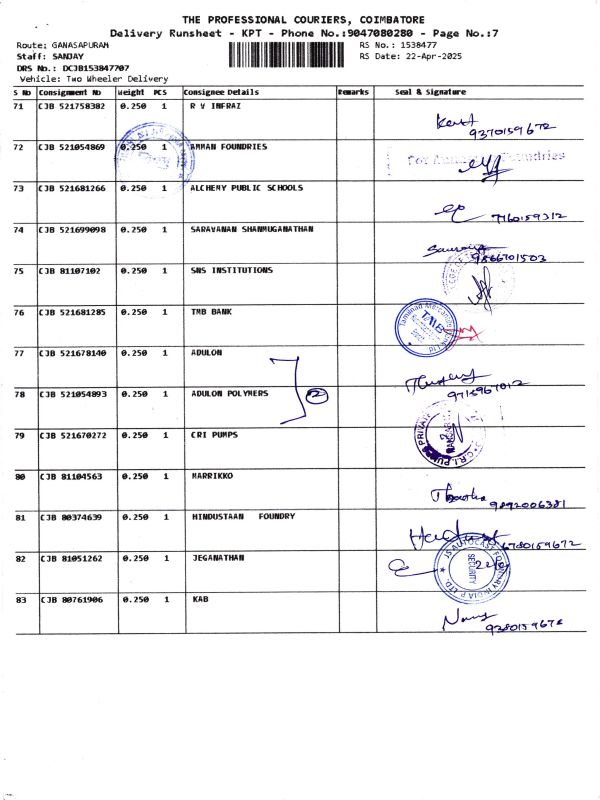 THE PROFESSIONAL COURIERS, COIMBATORE
Delivery Runsheet - KPT - Phone No.:9047080280 - Page No.:7
Route: GANASAPURAM RS No.: 1538477
Staff: SANJAY RS Date: 22-Apr-2025
DRS No.: DCJB153847707
Vehicle: Two Wheeler Delivery
S No Consignment No Weight PCS Consignee Details Remarks Seal & Signature
71 CJB 521758382 0.250 1 R V INFRAZ
9370159672
72 CJB 521054869 0.250 1 AMMAN FOUNDRIES
For Foundries
73 CJB 521681266 0.250 1 ALCHEMY PUBLIC SCHOOLS
7160159312
74 CJB 521699098 0.250 1 SARAVANAN SHANMUGANATHAN
9866701503
75 CJB 81107102 0.250 1 SNS INSTITUTIONS
76 CJB 521681285 0.250 1 TMB BANK
Tamilnad Mercantile
TMB
77 CJB 521678140 0.250 1 ADULON
9715967012
78 CJB 521054893 0.250 1 ADULON POLYMERS 2
79 CJB 521670272 0.250 1 CRI PUMPS
C.R.I. PUMPS PRIVATE
80 CJB 81104563 0.250 1 MARRIKKO
9892006381
81 CJB 80374639 0.250 1 HINDUSTAAN FOUNDRY
6780159672
82 CJB 81051262 0.250 1 JEGANATHAN
JS AUTOCAST FOUNDRY INDIA P LTD.
SECURITY
83 CJB 80761906 0.250 1 KAB